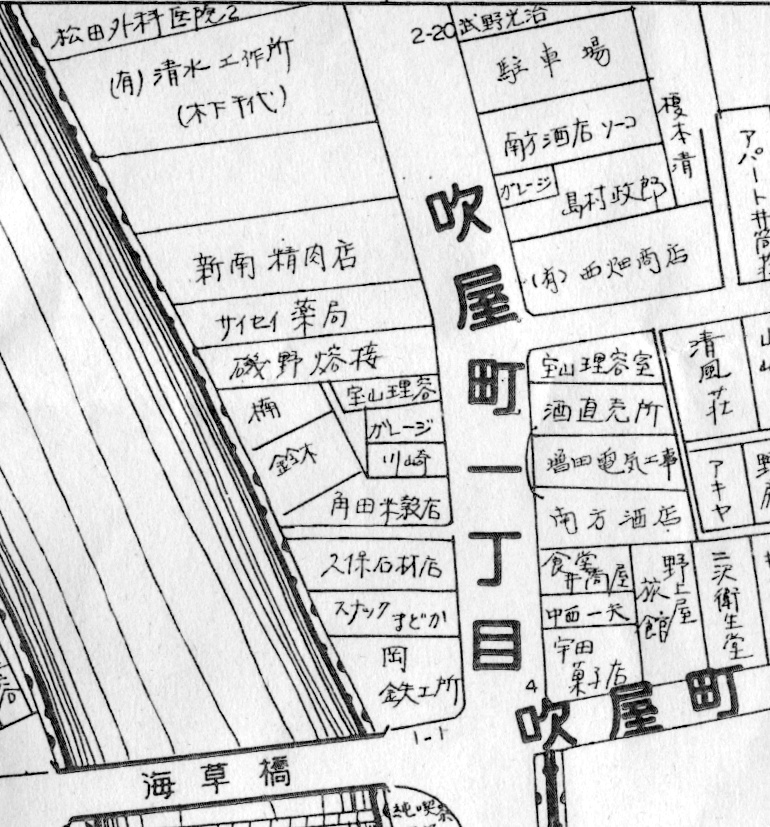 松田外科医院2
(有)清水工作所
(木下千代)
新南精肉店
サイセイ薬局
磯野熔接
楠
宝山理容
ガレージ
鈴木
川崎
角田米穀店
久保石材店
スナック まどか
岡
鉄工所
1-1
海草橋
純喫茶
吹屋町一丁目
2-20
武野光治
駐車場
南方酒店ソーコ
榎本清
ガレージ
島村政郎
(有)西畑商店
アパート井筒荘
宝山理容室
酒直売所
増田電気工事
南方酒店
清風荘
アキヤ
食堂
井筒屋
中西一夫
宇田
菓子店
野上屋
旅館
二次衛生堂
4
吹屋町